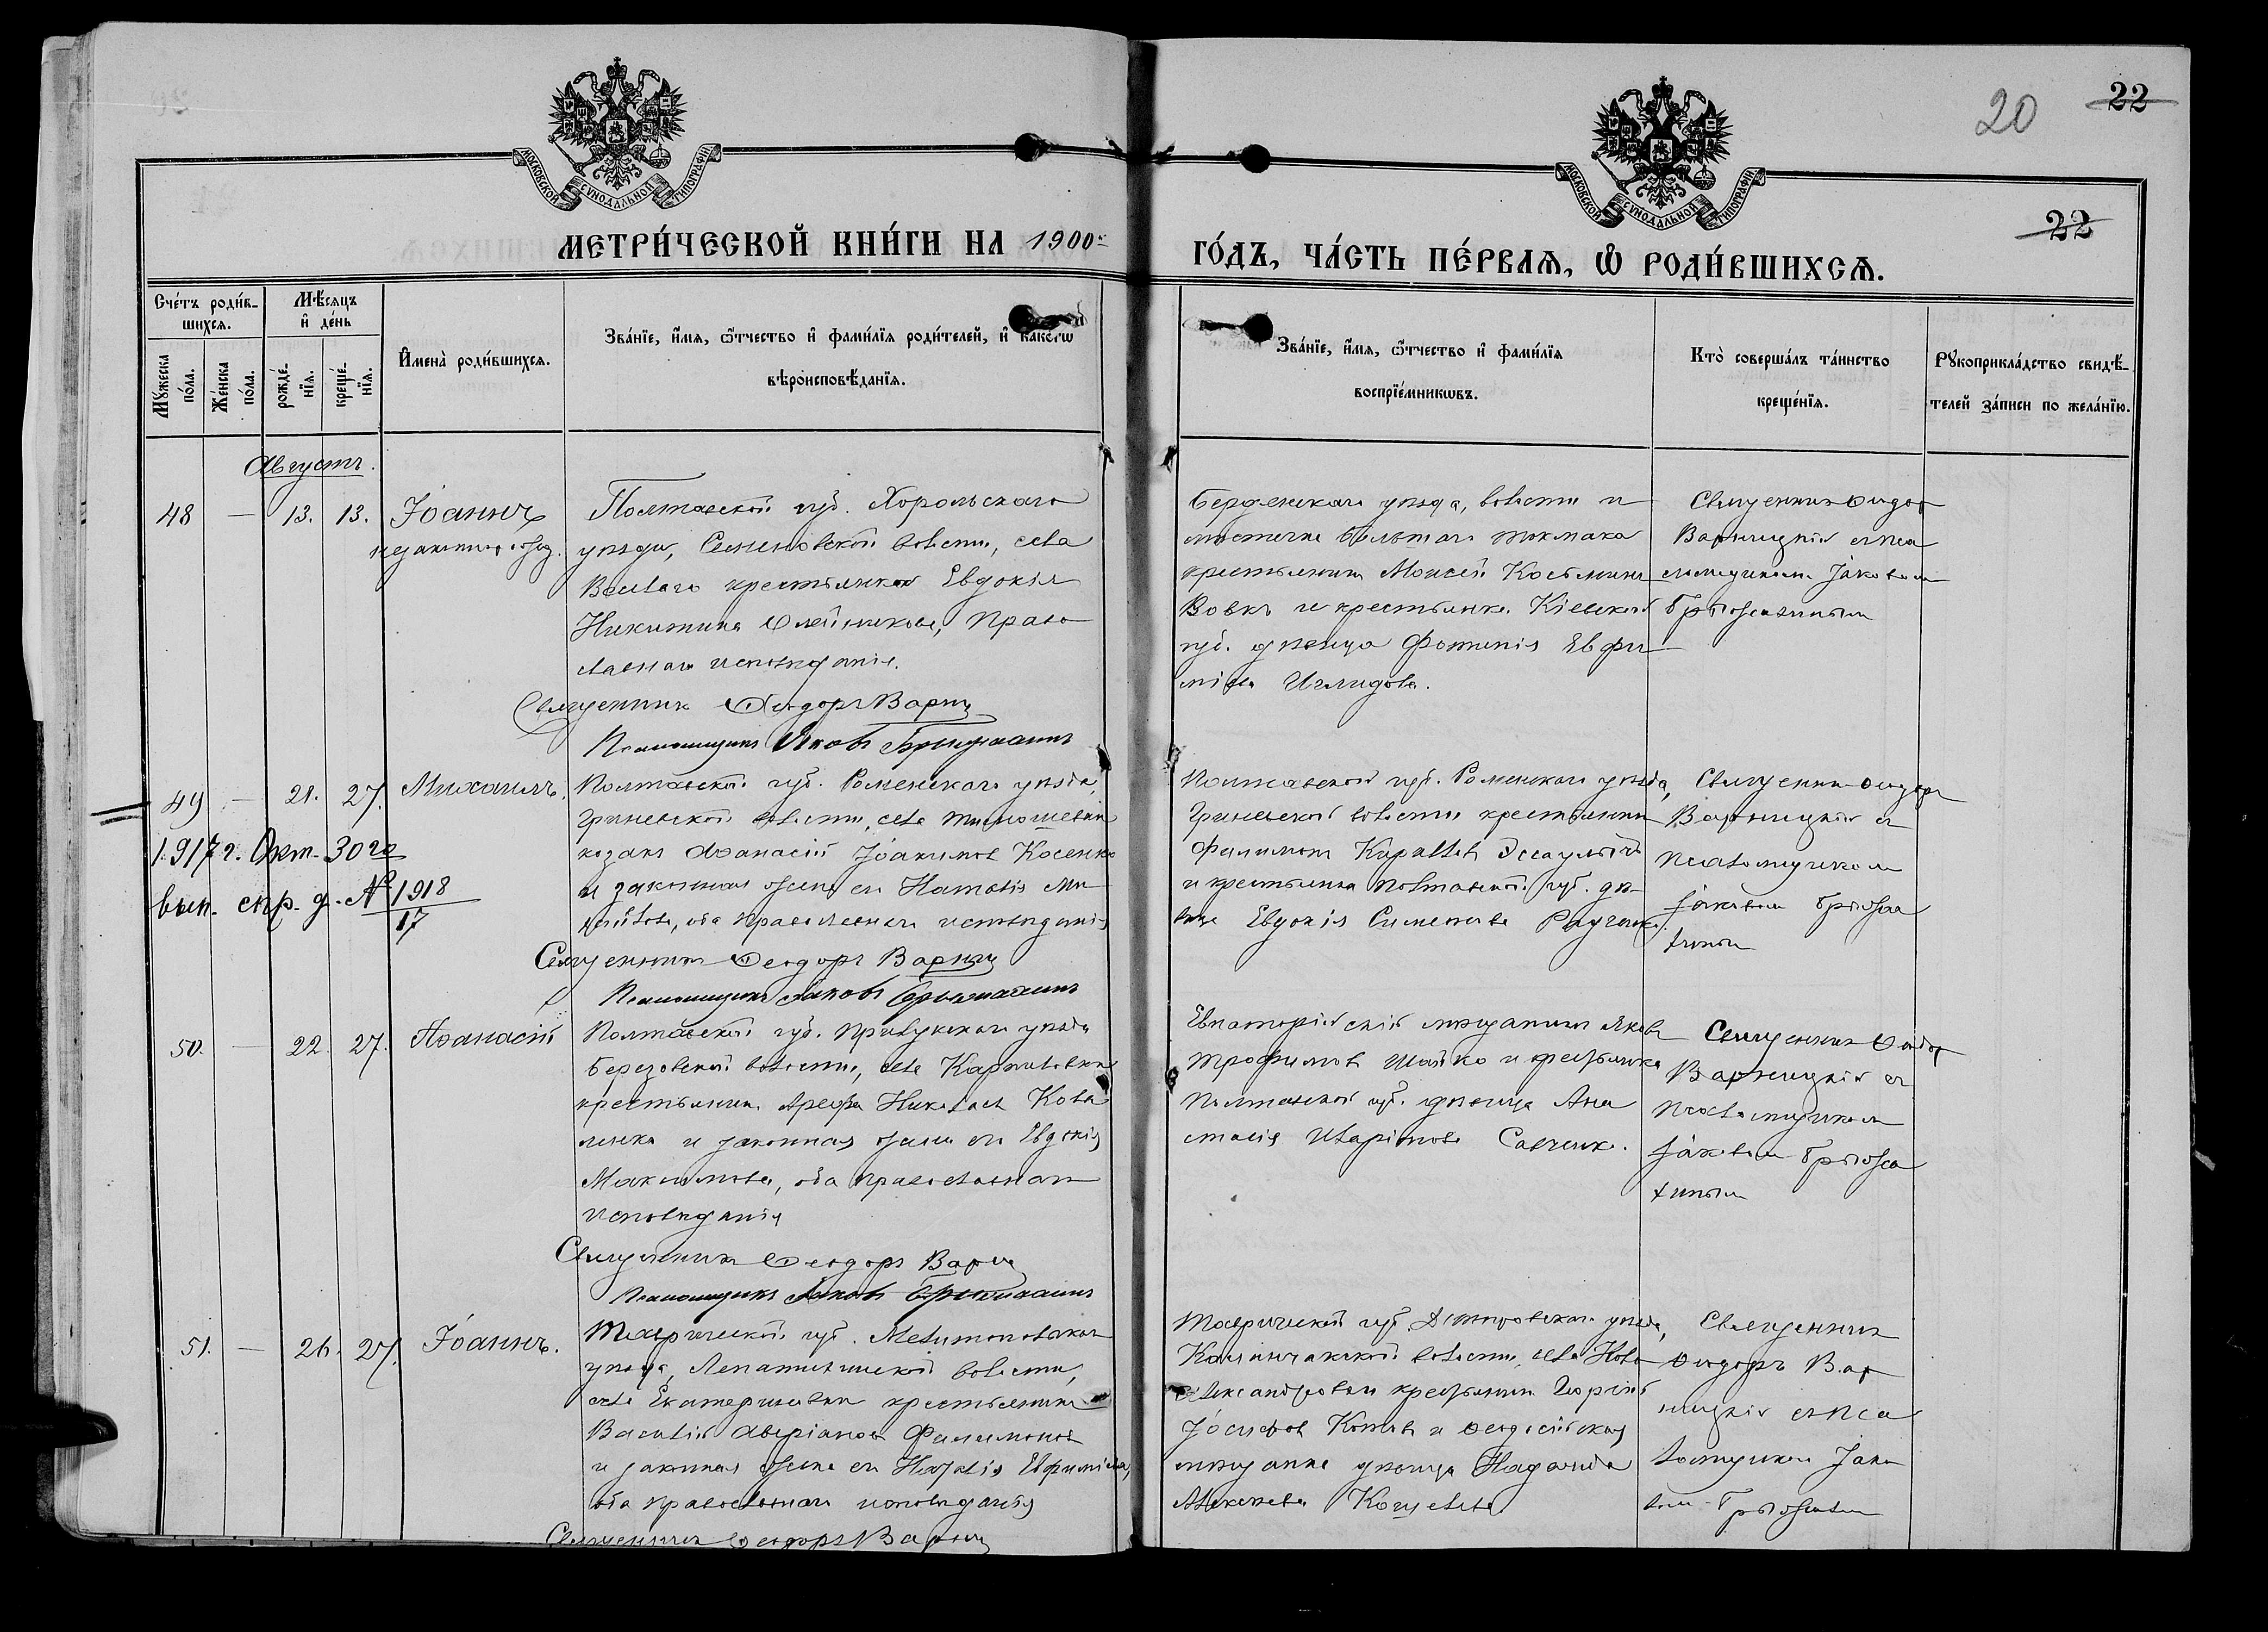 20
22
МОСКОВСКОЙ СѴНОДАЛЬНОЙ ТИПОГРАФІИ
МОСКОВСКОЙ СѴНОДАЛЬНОЙ ТИПОГРАФІИ
22
МЕТРИ́ЧЕСКОЙ КНИ́ГИ НА 1900й
ГО́ДЪ, ЧА́СТЬ ПЕ́РВАѦ, Ѡ҆ РОДИ́ВШИХСѦ.
Сче́тъ роди́в-
шихсѧ.
Мѣ́сѧцъ
и҆ де́нь
Мꙋ́жеска по́ла.
Же́нска по́ла.
рожде́-
нїѧ.
креще́-
нїѧ.
И҆мена̀ роди́вшихсѧ.
Зва́нїе, и҆́мѧ, ѻ҆́тчество и҆ фами́лїѧ роди́телей, и҆ како́гѡ
вѣроисповѣ́данїѧ.
Зва́нїе, и҆́мѧ, ѻ҆́тчество и҆ фами́лїѧ
воспрїе́мникѡвъ.
Кто̀ соверша́лъ та́инство
креще́нїѧ.
Рꙋкоприкла́дство свидѣ́-
телей за́писи по жела́нїю.
Августъ.
48 — 13. 13. Іоаннъ
Полтавской губ. Хорольскаго
уѣзда, Семеновской волости, села
Веселаго крестьянка Евдокія
Никитина Олейникова, Право
славнаго исповѣданія.
Священникъ Ѳеодоръ Варниц
Псаломщикъ Іаковъ
Бердянскаго уѣзда, волости и
мѣстечка Большаго Токмака
крестьянинъ Моисей Косьминъ
Вовкъ и крестьянка Кіевской
губ. дѣвица Фотинія Евфи
міева
Священникъ Ѳеодоръ
Варницкій съ пса
ломщикомъ Іаковомъ
49 — 21. 27. Михаилъ.
1917 г. Окт. 30 го
вып. спр. д. № 1918
17
Полтавской губ. Роменскаго уѣзда,
Гриневской волости, села Тимошевки
козакъ Аѳанасій Іоакимовъ Косенко
и законная жена его Наталія
оба православнаго исповѣданія
Священникъ Ѳеодоръ Варниц
Псаломщикъ Іаковъ
Полтавской губ. Роменскаго уѣзда,
Гриневской волости крестьянинъ
Филимонъ Кирилловъ
и крестьянка Полтавской губ. дѣ-
вица Евдокія Симеонова
Священникъ Ѳеодоръ
Варницкій съ
псаломщикомъ
Іаковомъ
50. — 22. 27. Аѳанасій
Полтавской губ. Прилукскаго уѣзда
Березовской волости, села Карпиловки
крестьянинъ Арефа Николаевъ Кова
ленко и законная жена его Евдокія
Максимова, оба православнаго
исповѣданія
Священникъ Ѳеодоръ Варниц
Псаломщикъ Іаковъ
Евпаторійскій мѣщанинъ Яковъ
Трофимовъ Шайко и крестьянка
Полтавской губ. дѣвица Ана
стасія Иларіонова Савченко.
Священникъ Ѳеодоръ
Варницкій съ
псаломщикомъ
Іаковомъ
51. — 26. 27. Іоаннъ.
Таврической губ. Мелитопольскаго
уѣзда, волости,
села Екатериновки крестьянинъ
Василій Аверіановъ Филимоновъ
и законная жена его Наталія Евфиміева,
оба православнаго исповѣданія
Священникъ Ѳеодоръ Варниц
Таврической губ. Днѣпровскаго уѣзда,
Каланчакской волости, села Ново
александровки крестьянинъ Георгій
Іосифовъ Котовъ и Ѳеодосійская
мѣщанка дѣвица
Алексѣева
Священникъ
Ѳеодоръ Вар
ницкій съ пса
ломщикомъ Іако
вомъ